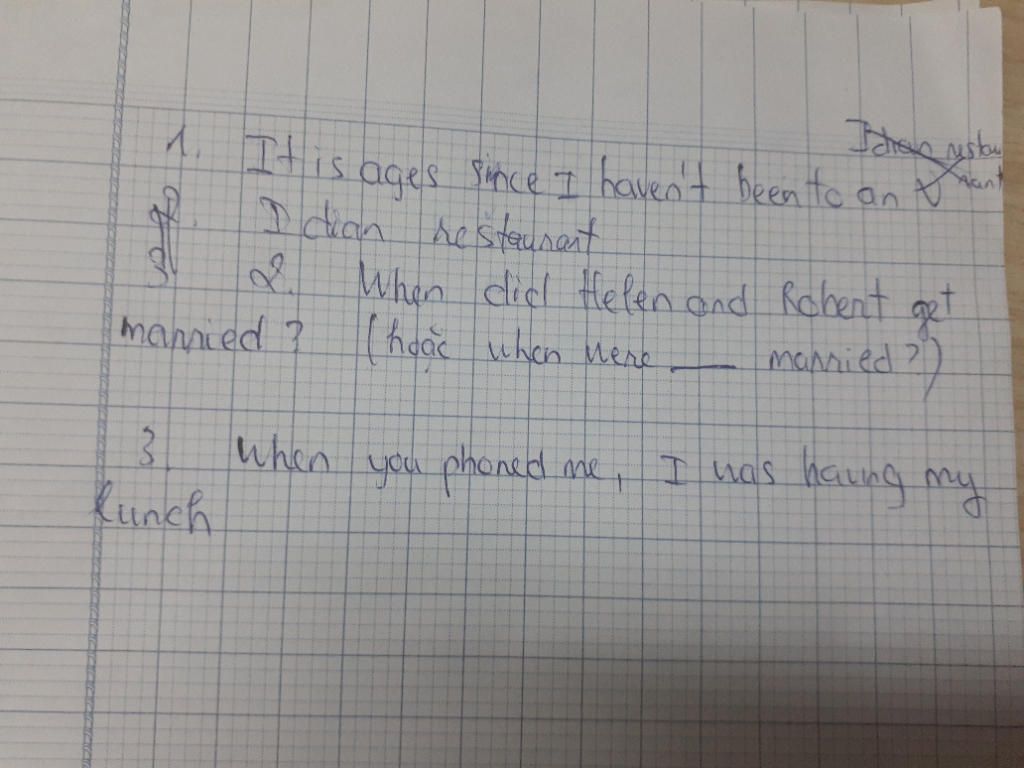 1. It is ages since I haven't been to an
I dian restaurant
2. When did Helen and Robert get
married? (hoặc when were ___ married?)
3. When you phoned me, I was having my
lunch